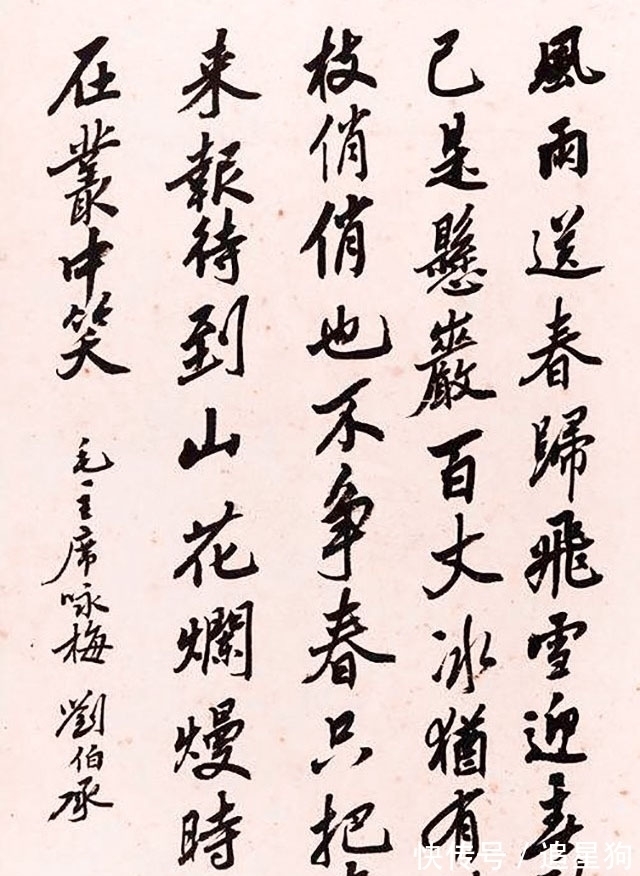 風雨送春歸飛雪迎春
已是懸巖百丈冰猶有
枝俏俏也不争春只把
来報待到山花爛熳時
在叢中笑
毛主席咏梅 劉伯承
快传号 / 追星狗